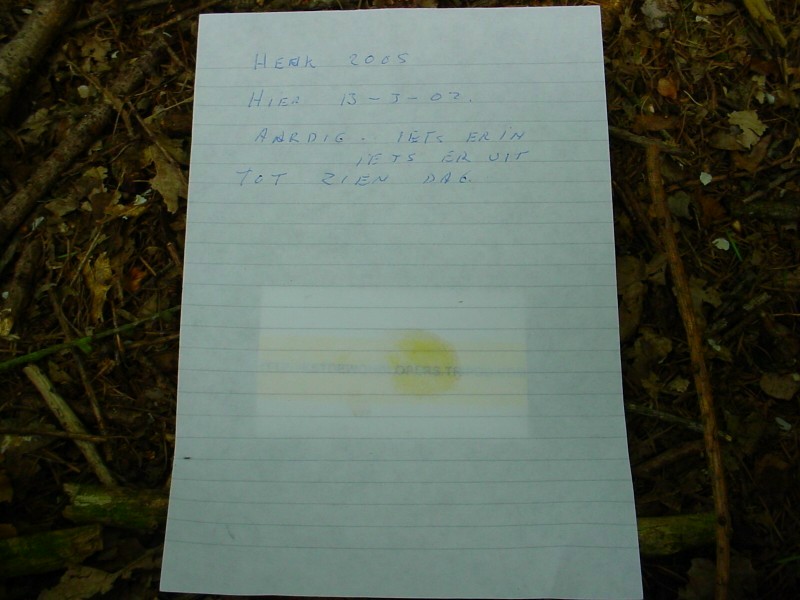 HENK 2005
HIER 13-3-02.
AARDIG. IETS ERIN
IETS ER UIT
TOT ZIEN DAG.